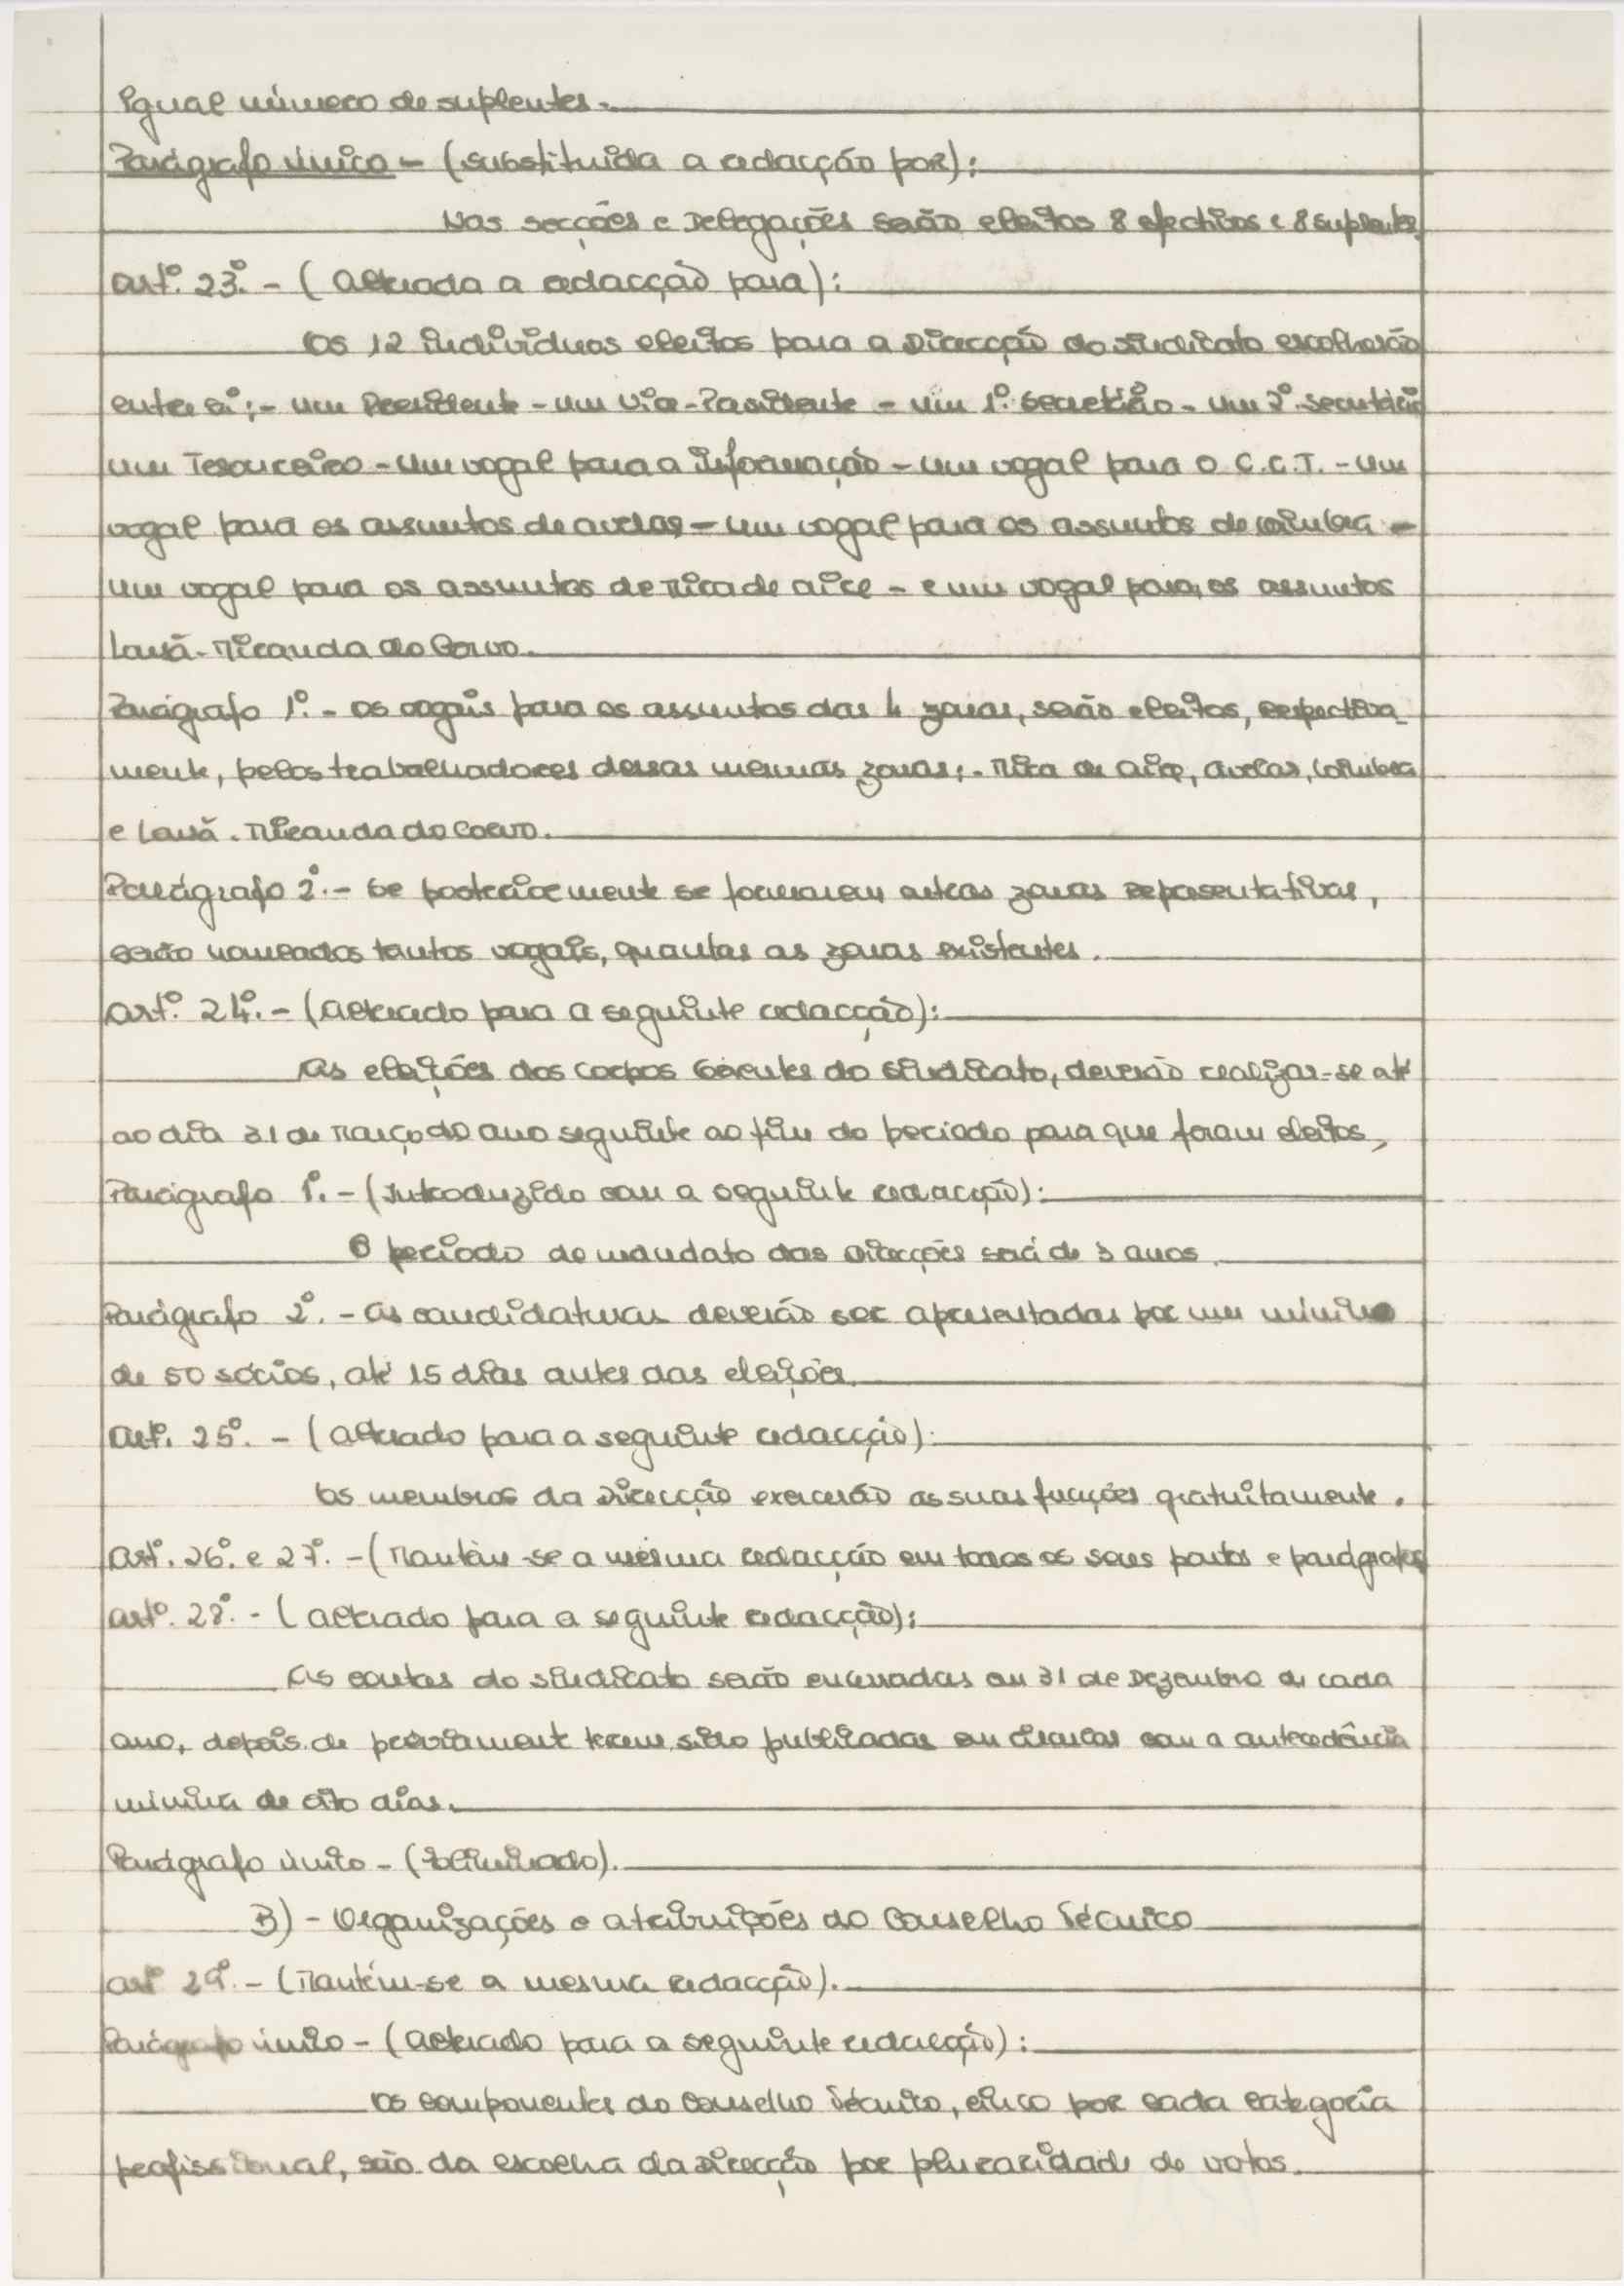 Igual número de suplentes.
Parágrafo único - (substituida a redacção por):
Nas secções e Delegações serão eleitos 8 efectivos e 8 suplentes.
Artº. 23º. - (Alterada a redacção para):
Os 12 individuos eleitos para a Direcção do Sindicato escolherão
entre si:- um Presidente - um Vice-Presidente - um 1º. Secretário - um 2º. Secretário
um Tesoureiro - um vogal para a informação - um vogal para o C.C.T. - um
vogal para os assuntos de avelar - um vogal para os assuntos de coimbra -
um vogal para os assuntos de Mira de aire - e um vogal para os assuntos
Lousã - Miranda do Corvo.
Parágrafo 1º. - os vogais para os assuntos das 4 zonas, serão eleitos, respectiva-
mente, pelos trabalhadores dessas mesmas zonas:- Mira de aire, avelar, Coimbra
e Lousã - Miranda do Corvo.
Parágrafo 2º. - Se posteriormente se formarem outras zonas representativas,
serão nomeados tantos vogais, quantas as zonas existentes.
Artº. 24º. - (Alterado para a seguinte redacção):
As eleições dos Corpos Gerentes do Sindicato, deverão realizar-se até
ao dia 31 de Março do ano seguinte ao fim do periodo para que foram eleitos,
Parágrafo 1º. - (Introduzido com a seguinte redacção):
O periodo de mandato das Direcções será de 3 anos.
Parágrafo 2º. - As candidaturas deverão ser apresentadas por um minimo
de 50 sócios, até 15 dias antes das eleições.
Artº. 25º. - (Alterado para a seguinte redacção):
Os membros da Direcção exercerão as suas funções gratuitamente.
Artº. 26º. e 27º. - (Mantém-se a mesma redacção em todos os seus pontos e parágrafos
Artº. 28º. - (Alterado para a seguinte redacção):
As contas do sindicato serão encerradas em 31 de Dezembro de cada
ano, depois de préviamente terem sido publicadas em circular com a antecedência
minima de oito dias.
Parágrafo único - (Eliminado).
B) - Organizações e atribuições do Conselho Técnico
Artº 29º. - (Mantém-se a mesma redacção).
Parágrafo único - (Alterado para a seguinte redacção):
Os componentes do Conselho Técnico, cinco por cada categoria
profissional, são da escolha da Direcção por pluralidade de votos.